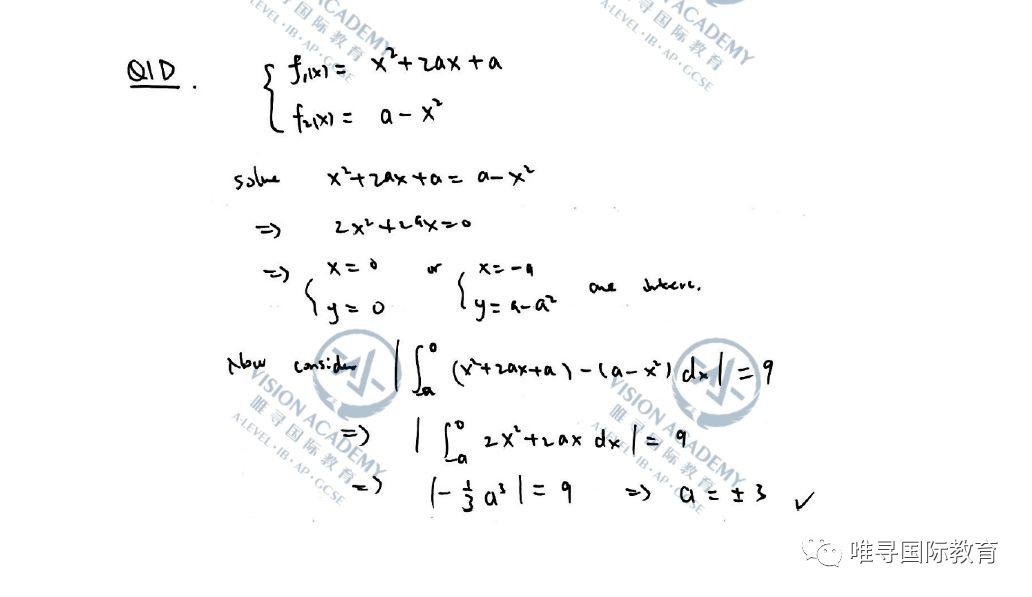 Q1D. { f₁(x) = x²+2ax+a
f₂(x) = a-x²
solve x²+2ax+a = a-x²
=> 2x²+2ax=0
=> { x=0 or { x=-a
y=0 y=a-a² are
Now consider |∫₋ₐ⁰ (x²+2ax+a)-(a-x²) dx| = 9
=> |∫₋ₐ⁰ 2x²+2ax dx| = 9
=> |-⅓a³| = 9 => a = ±3 ✓
VISION ACADEMY
唯寻国际教育
A-LEVEL·IB·AP·GCSE
VISION ACADEMY
唯寻国际教育
A-LEVEL·IB·AP·GCSE
VISION ACADEMY
唯寻国际教育
A-LEVEL·IB·AP·GCSE
VISION ACADEMY
唯寻国际教育
A-LEVEL·IB·AP·GCSE
唯寻国际教育